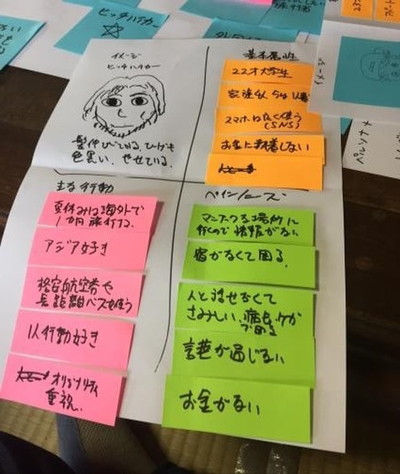 ヒッチハイカー
イメージ
ヒッチハイカー
髪伸びている、ひげも
色黒い、やせている。
基本属性
22才大学生
友達少
スマホはよく使う
(SNS)
お金に執着しない
主な行動
夏休みは海外で
1か月旅行する。
アジア好き
格安航空券や
長距離バスを使う
1人行動好き
オリジナリティ
重視。
ペイン/ニーズ
マニアックな場所に
行くので情報がない
宿がなくて困る。
人と話せなくて
さみしい、病気、ケガ
で困る
言葉が通じない
お金がない